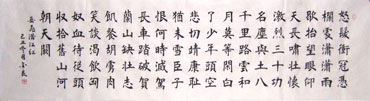 怒髮衝冠憑
欄處瀟瀟雨
歇抬望眼仰
天長嘯壯懷
激烈三十功
名塵與土八
千里路雲和
月莫等閒白
了少年頭空
悲切靖康恥
猶未雪臣子
恨何時滅駕
長車踏破賀
蘭山缺壯志
飢餐胡虜肉
笑談渴飲匈
奴血待從頭
收拾舊山河
朝天闕
岳飛滿江紅